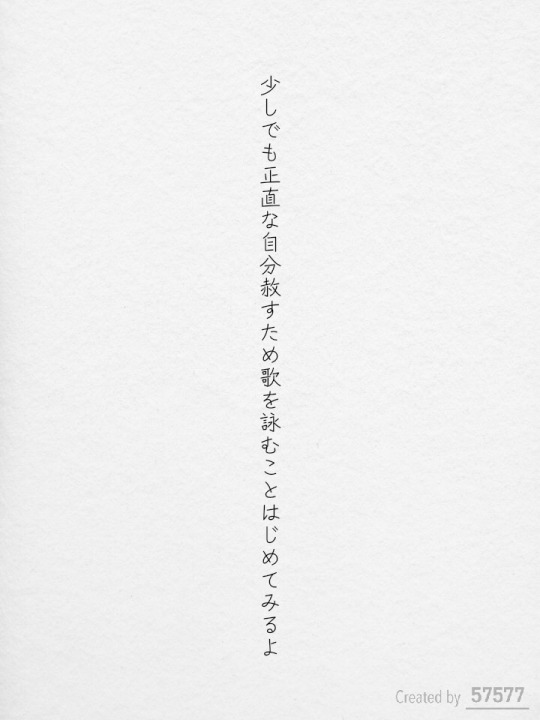 少しでも正直な自分赦すため歌を詠むことはじめてみるよ
Created by 57577